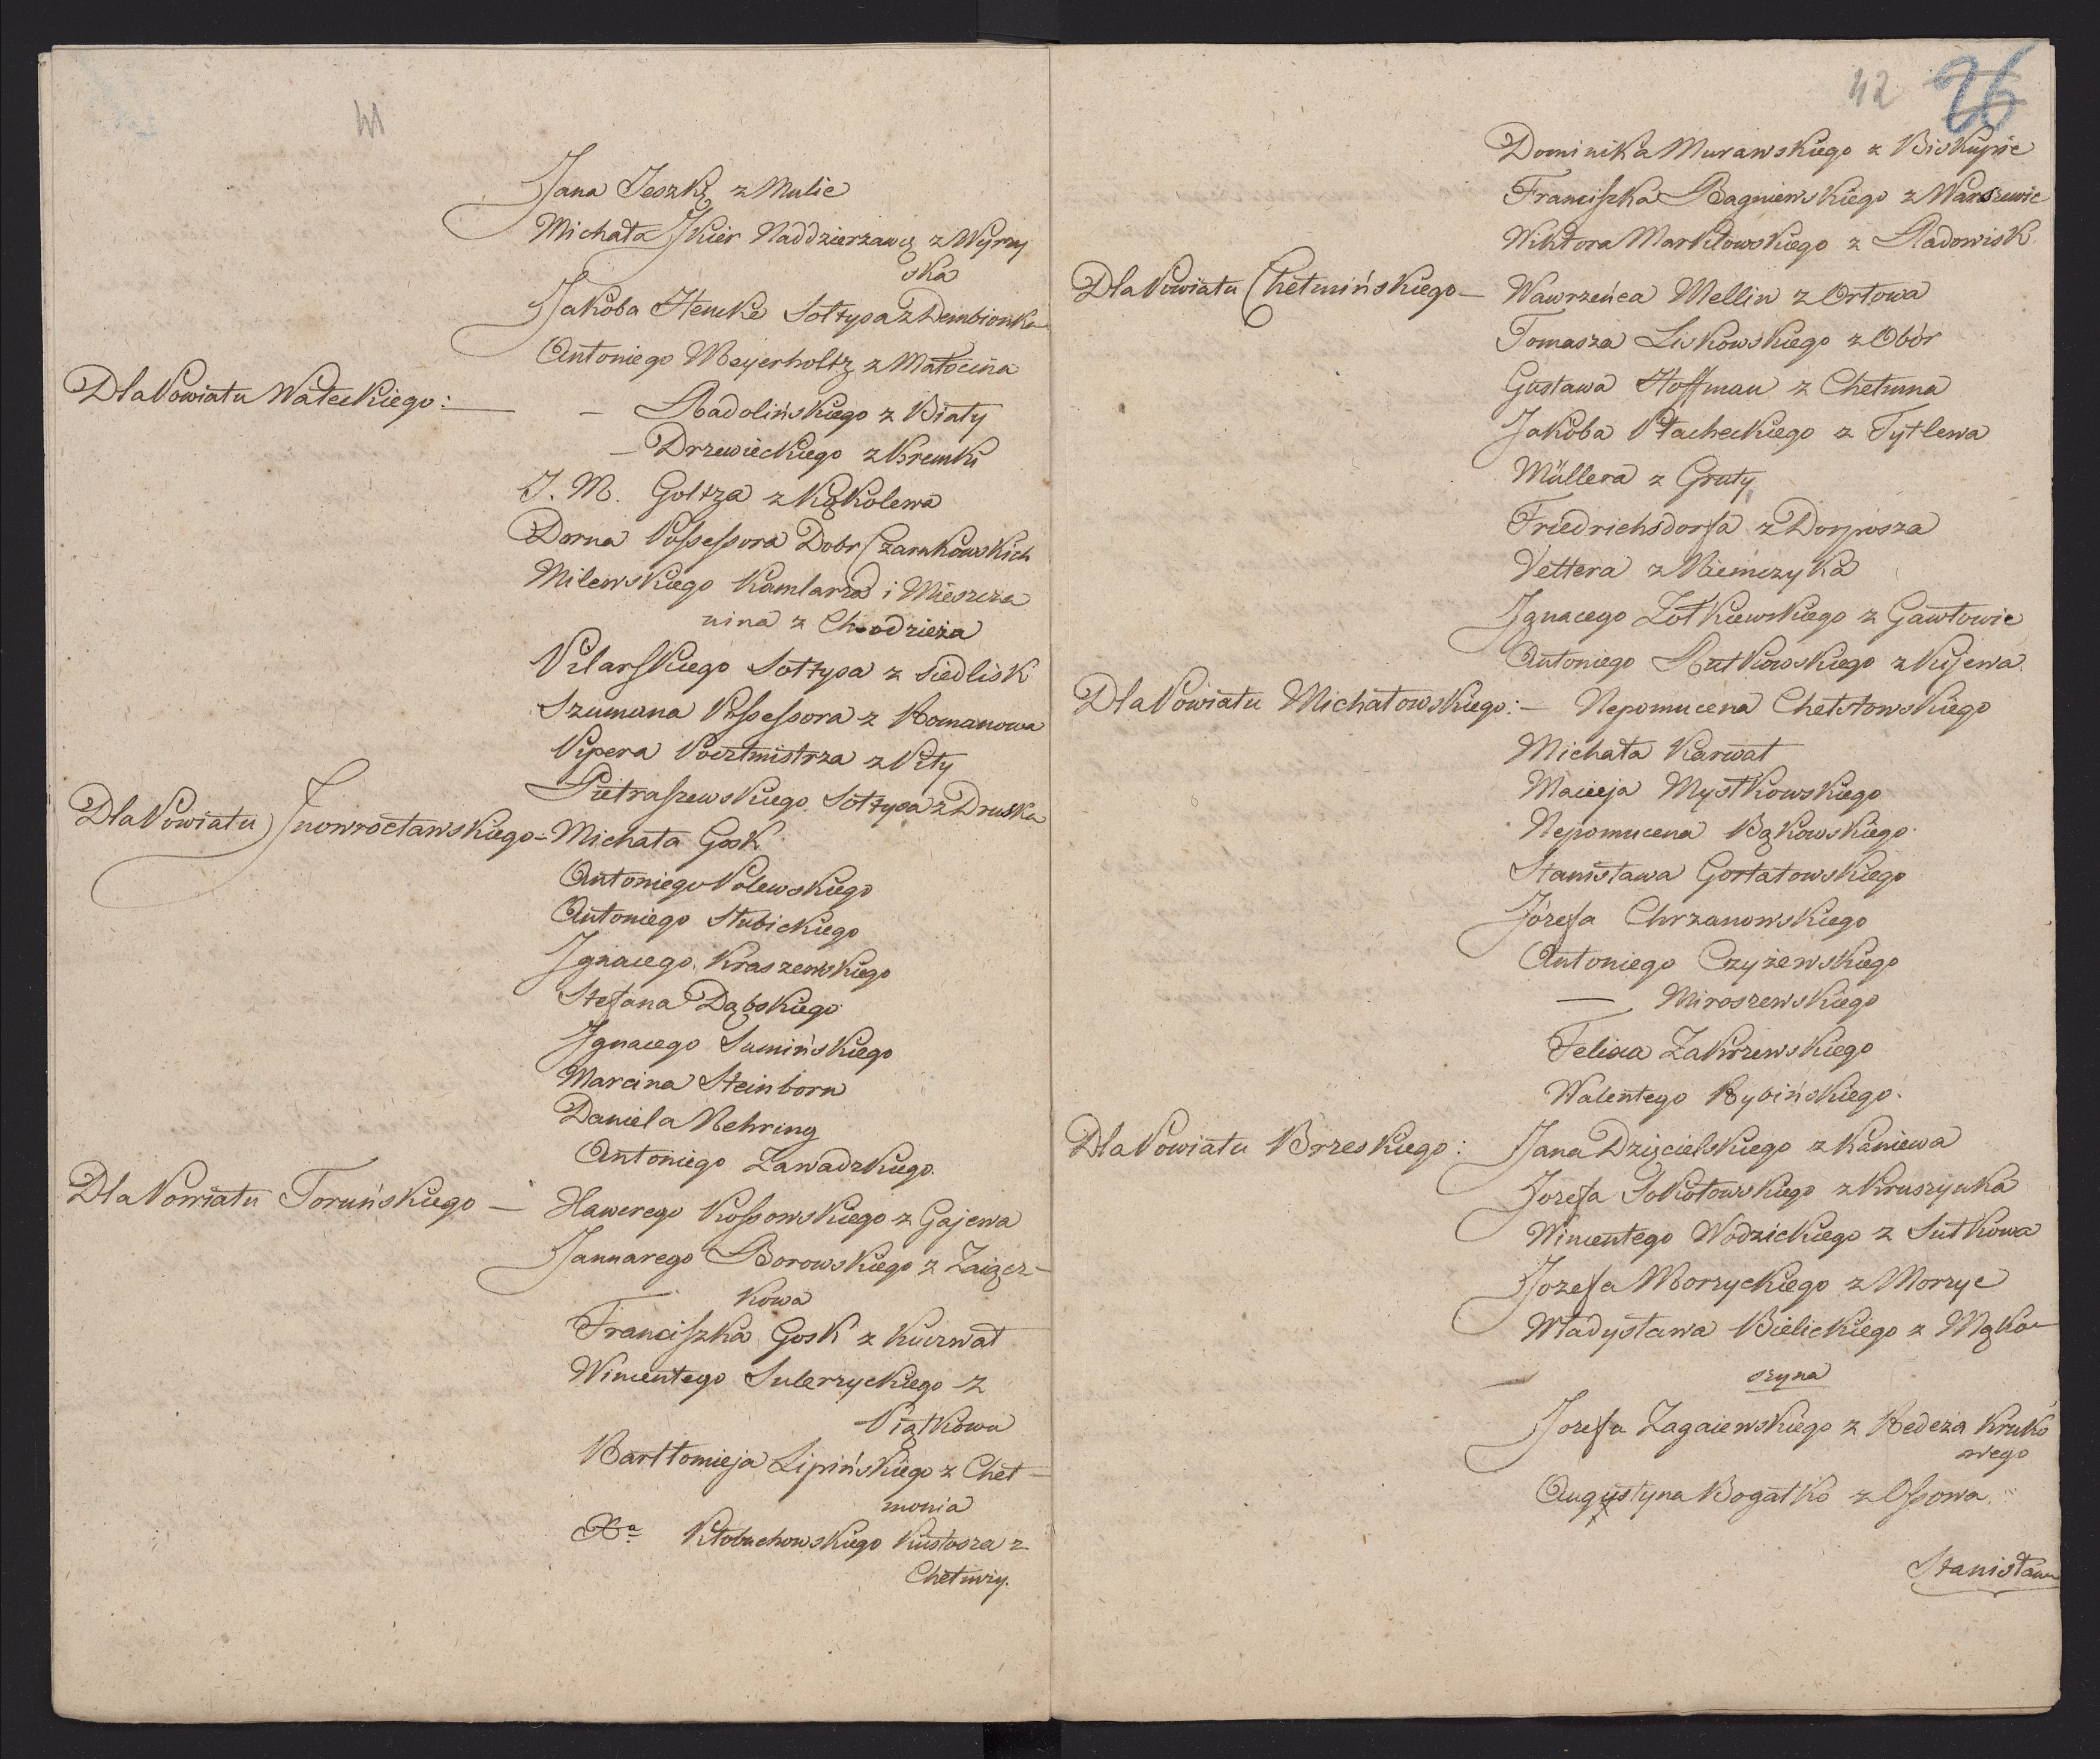 41
Jana Jeszkę z Mulic
Michała Jkier Naddzierzawcę z Wyrzy
ska
Jakóba Hencke Sołtysa z Dembionka
Antoniego Meyerholtz z Małocina
Dla Powiatu Wałeckiego: — – Radolińskiego z Biały
– Drzewieckiego z Kremki
J. M. Goltza z Kąkolewa
Dorna Possessora Dobr Czarnkowskich
Milewskiego Kamlarza i Mieszcza
nina z Chodzieża
Pilarskiego Sołtysa z Siedlisk
Szumana Possessora z Romanowa
Pipera Pocztmistrza z Piły
Pietraszewskiego Sołtysa z Druska
Dla Powiatu Jnowrocławskiego – Michała Gosk
Antoniego Polewskiego
Antoniego Słubickiego
Jgnacego Kraszewskiego
Stefana Dąbskiego
Jgnacego Sumińskiego
Marcina Steinborn
Daniela Nehring
Antoniego Zawadzkiego.
Dla Powiatu Toruńskiego — Xawerego Kossowskiego z Gajewa
Januarego Borowskiego z Zaięcz–
kowa
Franciszka Gosk z Kuczwał
Wincentego Sulerzyckiego z
Piątkowa
Bartłomieja Lipińskiego z Cheł–
monia
Xa Kłobuchowskiego Kustosza z
Chełmży.
42 26
Dominika Murawskiego z Biskupic
Franciszka Bagniewskiego z Warszewic
Wiktora Markłowskiego z Radowisk
Dla Powiatu Chełmińskiego — Wawrzeńca Mellin z Orłowa
Tomasza Liskowskiego z Obór
Gustawa Hoffman z Chełmna
Jakóba Płacheckiego z Tytlewa
Müllera z Gruty
Friedrichsdorfa z Dorposza
Vettera z Niemczyka
Jgnacego Żółkiewskiego z Gawłowic
Antoniego Rutkowskiego z Kijewa.
Dla Powiatu Michałowskiego: — Nepomucena Chełstowskiego
Michała Karwat
Macieja Mystkowskiego
Nepomucena Bąkowskiego
Stanisława Gorłatowskiego
Józefa Chrzanowskiego
Antoniego Czyżewskiego
— Miroszewskiego
Felixa Zakrzewskiego
Walentego Rybińskiego.
Dla Powiatu Brzeskiego: Jana Dzięcielskiego z Kaniewa
Jozefa Sokołowskiego z Kruszynka
Wincentego Wodzickiego z Sułkowa
Jozefa Morzyckiego z Morzyc
Władysława Bielickiego z Mąko–
szyna
Jozefa Zagaiewskiego z Redeza Kruko
wego
Augustyna Bogatko z Ossowa.
Stanisława